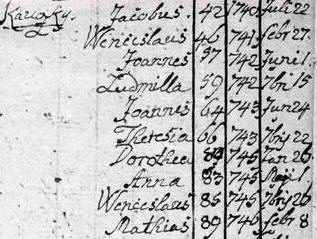 Jacobus. 42 1740 Juli 22
Wenceslaus 46 741 febr 27.
Joannes 57 742 Juni 1.
Ludmilla 59 742 7bri 15
Joannes 64 743 Jun 24
Theresia 66 743 7bris 22
Dorothea 745 Jan 26
Anna 83 745 1
Wenceslaus 85 7bri 26
Mathias 89 746 febr 8